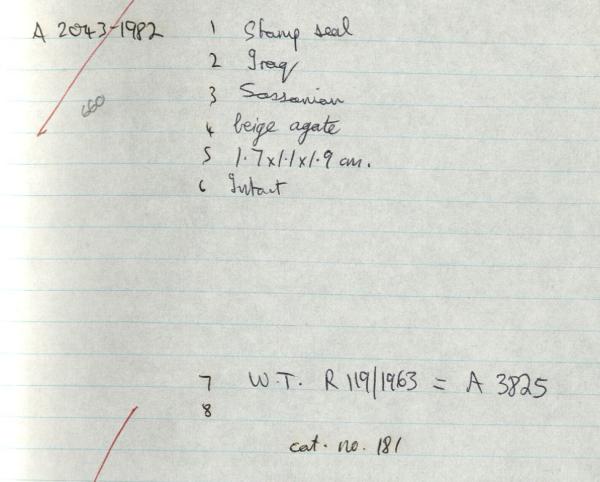 A 2043-1982 1 Stamp seal
2 Iraq
660
3 Sassanian
4 beige agate
5 1.7x1.1x1.9 cm.
6 Intact
7 W.T. R 119/1963 = A 3825
8
cat. no. 181